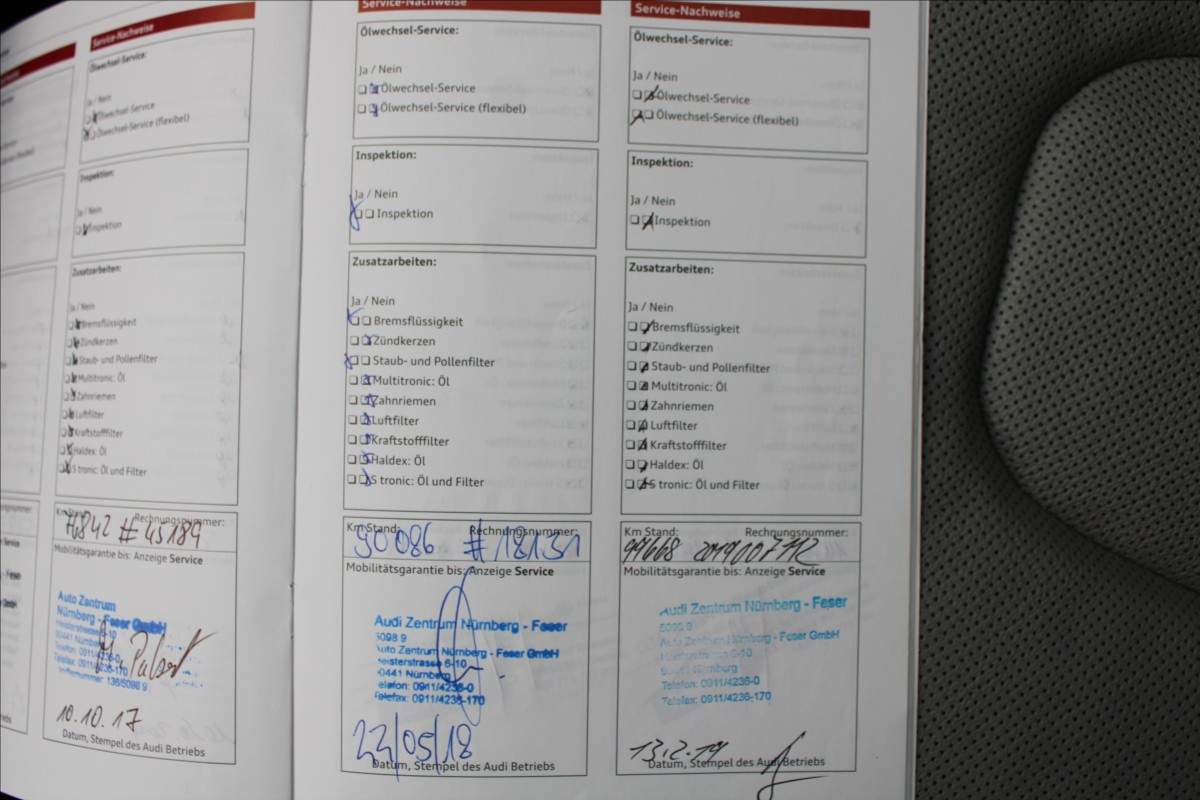 Service-Nachweise
Ölwechsel-Service:
Ja / Nein
Ölwechsel-Service
Ölwechsel-Service (flexibel)
Inspektion:
Ja / Nein
Inspektion
Zusatzarbeiten:
Ja / Nein
Bremsflüssigkeit
Zündkerzen
Staub- und Pollenfilter
Multitronic: Öl
Zahnriemen
Luftfilter
Kraftstofffilter
Haldex: Öl
S tronic: Öl und Filter
Km Stand: Rechnungsnummer:
#45189
Mobilitätsgarantie bis: Anzeige Service
Auto Zentrum
Nürnberg - Feser GmbH
90441 Nürnberg
Telefon: 0911/4236-0
Telefax: 0911/4236-170
10.10.17
Datum, Stempel des Audi Betriebs
Service-Nachweise
Ölwechsel-Service:
Ja / Nein
Ölwechsel-Service
Ölwechsel-Service (flexibel)
Inspektion:
Ja / Nein
Inspektion
Zusatzarbeiten:
Ja / Nein
Bremsflüssigkeit
Zündkerzen
Staub- und Pollenfilter
Multitronic: Öl
Zahnriemen
Luftfilter
Kraftstofffilter
Haldex: Öl
S tronic: Öl und Filter
Km Stand: Rechnungsnummer:
90086 #18131
Mobilitätsgarantie bis: Anzeige Service
Audi Zentrum Nürnberg - Feser
5098 9
Auto Zentrum Nürnberg - Feser GmbH
Heisterstrasse 6-10
90441 Nürnberg
Telefon: 0911/4236-0
Telefax: 0911/4236-170
22/05/18
Datum, Stempel des Audi Betriebs
Service-Nachweise
Ölwechsel-Service:
Ja / Nein
Ölwechsel-Service
Ölwechsel-Service (flexibel)
Inspektion:
Ja / Nein
Inspektion
Zusatzarbeiten:
Ja / Nein
Bremsflüssigkeit
Zündkerzen
Staub- und Pollenfilter
Multitronic: Öl
Zahnriemen
Luftfilter
Kraftstofffilter
Haldex: Öl
S tronic: Öl und Filter
Km Stand: Rechnungsnummer:
99668
Mobilitätsgarantie bis: Anzeige Service
Audi Zentrum Nürnberg - Feser
5098 9
Auto Zentrum Nürnberg - Feser GmbH
Heisterstrasse 6-10
90441 Nürnberg
Telefon: 0911/4236-0
Telefax: 0911/4236-170
13.2.19
Datum, Stempel des Audi Betriebs